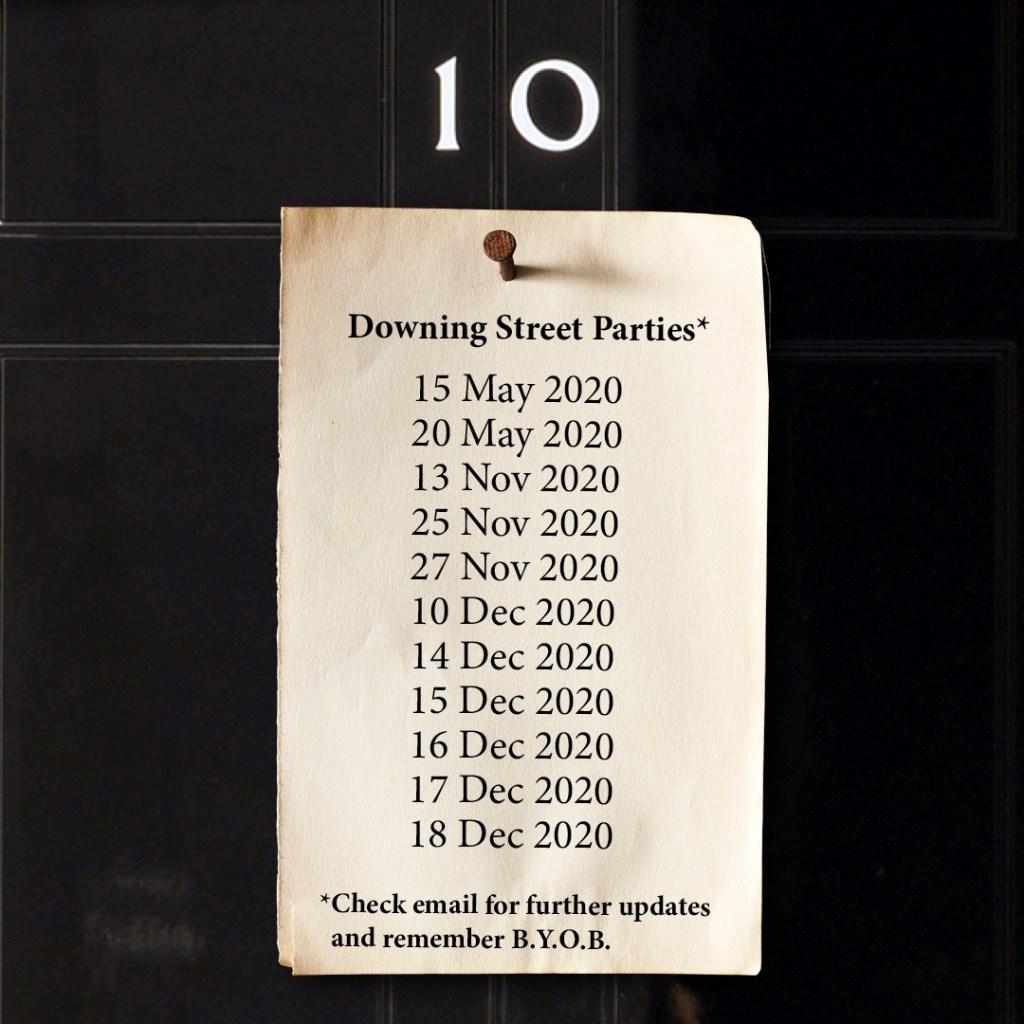 10
Downing Street Parties*
15 May 2020
20 May 2020
13 Nov 2020
25 Nov 2020
27 Nov 2020
10 Dec 2020
14 Dec 2020
15 Dec 2020
16 Dec 2020
17 Dec 2020
18 Dec 2020
*Check email for further updates
and remember B.Y.O.B.